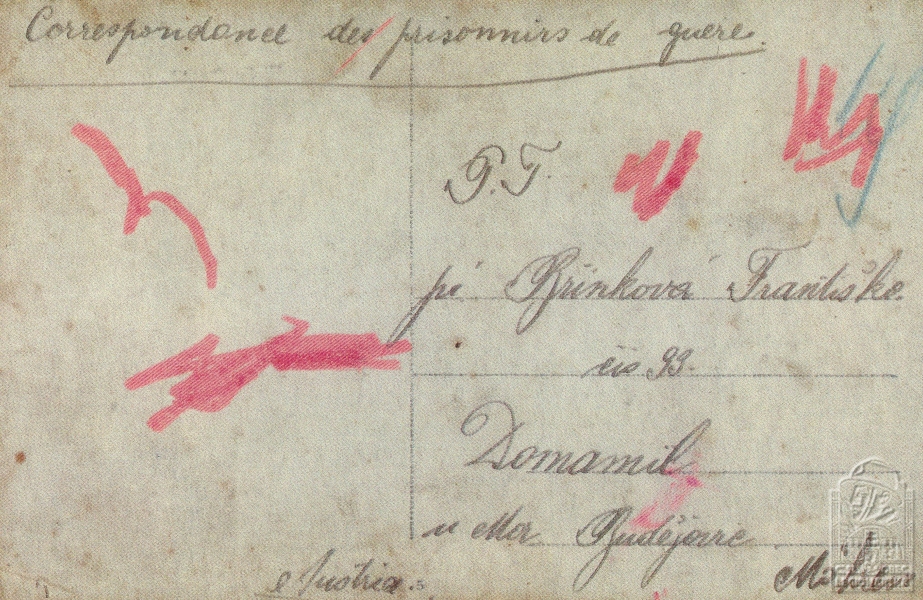 Correspondance des prisonnirs de guere.
P. T.
pí Brínková Františka
čís 93.
Domamil
u Mor Budějovic
Austria.